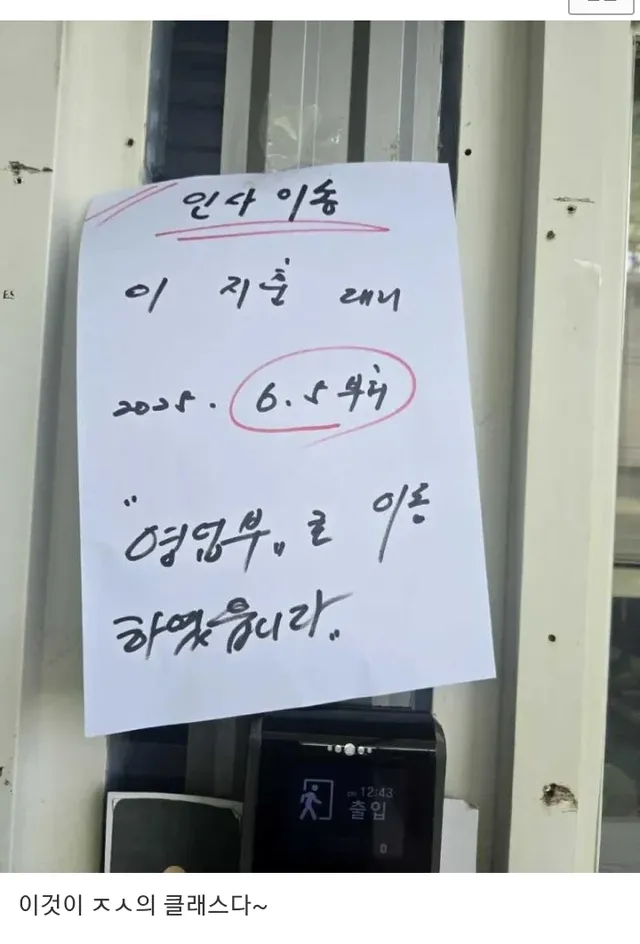 인사 이동
이 지훈 대리
2025. 6.5 부터
"영업부" 로 이동
하였읍니다"
12:43
출입
0
이것이 ㅈㅅ의 클래스다~